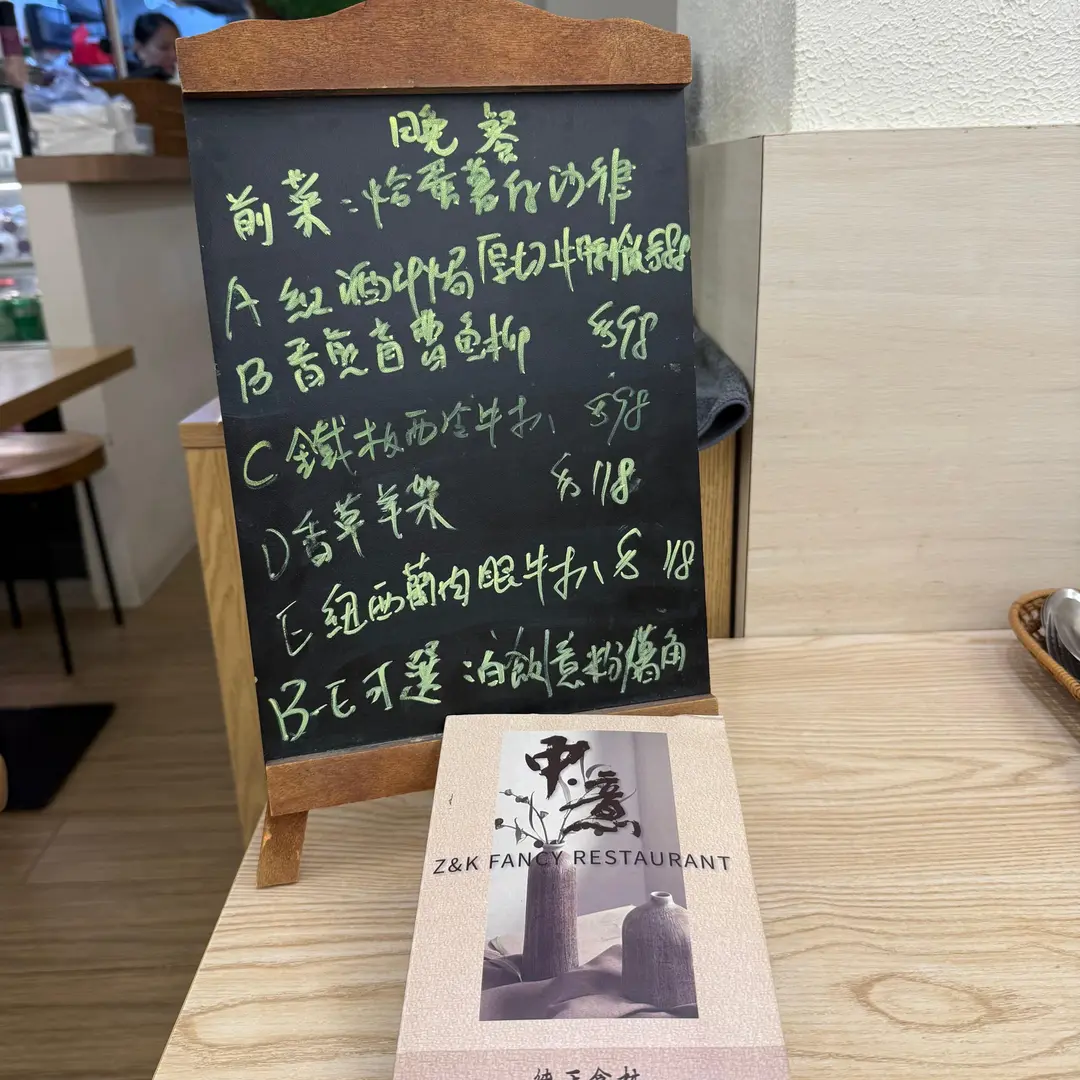 晚餐
前菜：烚蛋薯仔沙律
A 紅酒汁焗厚切牛脷飯 $88
B 香煎盲曹魚柳 $98
C 鐵板西冷牛扒 $98
D 香草羊架 $118
E 紐西蘭肉眼牛扒 $118
B-E可選：白飯/意粉/薯角
中意
Z&K FANCY RESTAURANT